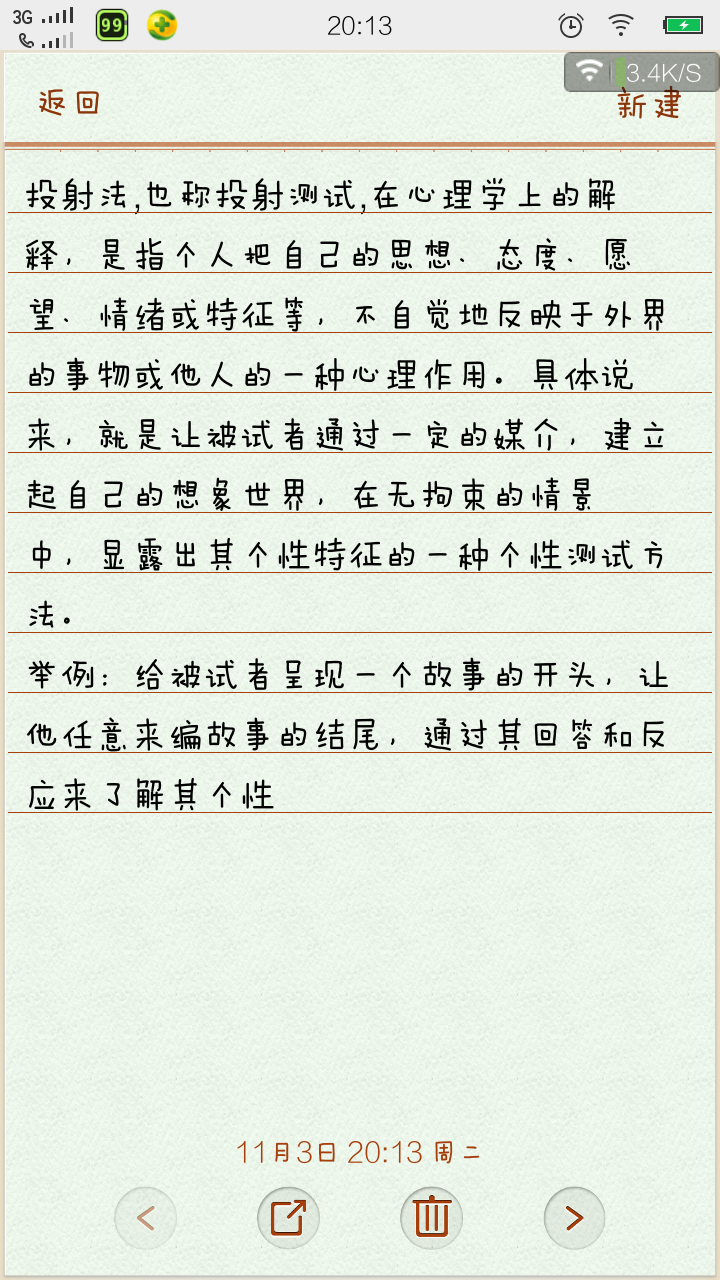 3G 99 20:13
3.4K/S
返回 新建
投射法,也称投射测试,在心理学上的解
释，是指个人把自己的思想、态度、愿
望、情绪或特征等，不自觉地反映于外界
的事物或他人的一种心理作用。具体说
来，就是让被试者通过一定的媒介，建立
起自己的想象世界，在无拘束的情景
中，显露出其个性特征的一种个性测试方
法。
举例：给被试者呈现一个故事的开头，让
他任意来编故事的结尾，通过其回答和反
应来了解其个性
11月3日 20:13 周二